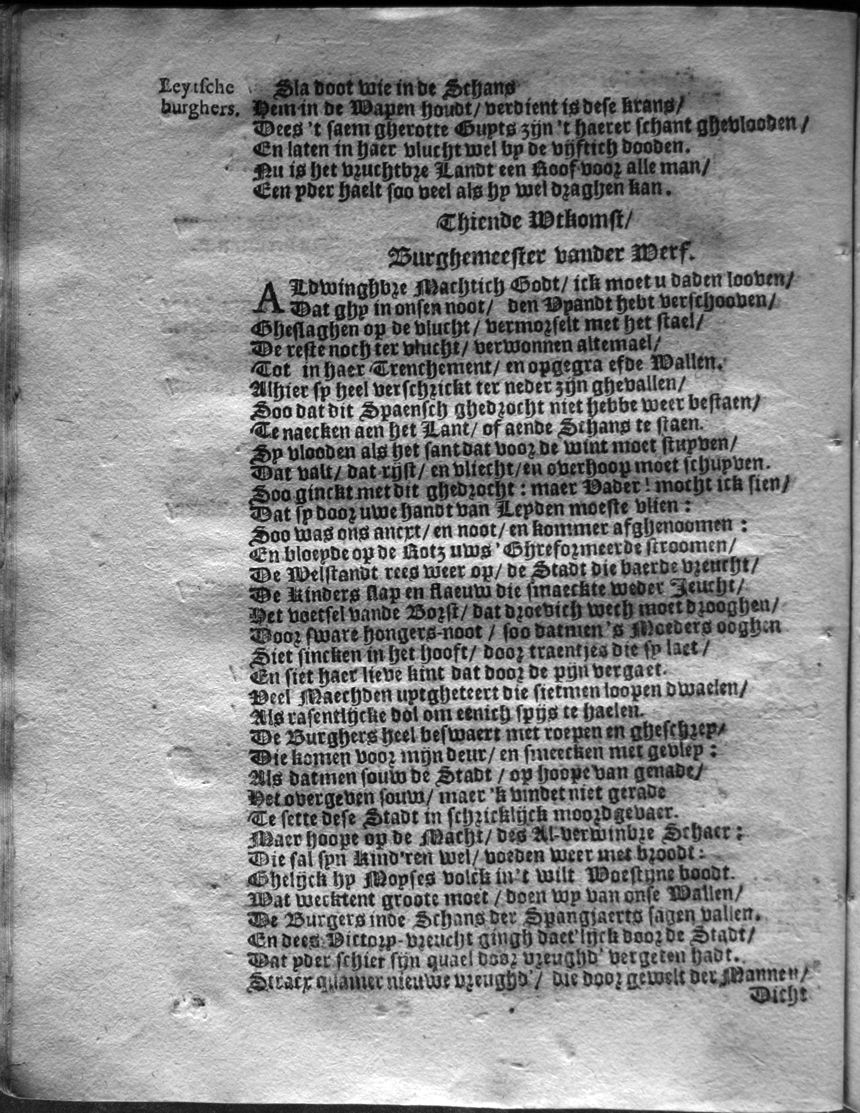 Leytsche burghers.
Sla doot wie in de Schans
Hem in de Wapen houdt/ verdient is dese krans/
Dees 't saem gherotte Guyts zijn 't haerer schant ghevlooden/
En laten in haer vlucht wel by de vijftich dooden.
Nu is het vruchtbre Landt een Roof voor alle man/
Een yder haelt soo veel als hy wel draghen kan.
Thiende Wtkomst/
Burghemeester vander Werf.
ALdwinghbre Machtich Godt/ ick moet u daden looven/
Dat ghy in onsen noot/ den Vyandt hebt verschooven/
Gheslaghen op de vlucht/ vermorselt met het stael/
De reste noch ter vlucht/ verwonnen altemael/
Tot in haer Trenchement/ en opgegra efde Wallen.
Alhier sy heel verschrickt ter neder zijn ghevallen/
Soo dat dit Spaensch ghedrocht niet hebbe weer bestaen/
Te naecken aen het Lant/ of aende Schans te staen.
Sy vlooden als het sant dat voor de wint moet stuyven/
Dat valt/ dat rijst/ en vliecht/ en overhoop moet schuyven.
Soo ginckt met dit ghedrocht: maer Vader! mocht ick sien/
Dat sy door uwe handt van Leyden moeste vlien:
Soo was ons ancxt/ en noot/ en kommer afghenoomen:
En bloeyde op de Rotz uws 'Ghreformeerde stroomen/
De Welstandt rees weer op/ de Stadt die baerde vreucht/
De Kinders slap en flaeuw die smaeckte weder Jeucht/
Het voetsel vande Borst/ dat droevich wech moet drooghen/
Door sware hongers-noot/ soo datmen 's Moeders ooghen
Siet sincken in het hooft/ door traentjes die sy laet/
En siet haer lieve kint dat door de pijn vergaet.
Veel Maechden uytgheteert die sietmen loopen dwaelen/
Als rasentlijcke dol om eenich spijs te haelen.
De Burghers heel beswaert met roepen en gheschrey/
Die komen voor mijn deur/ en smeecken met gevley:
Als datmen souw de Stadt/ op hoope van genade/
Het overgeven souw/ maer 'k vindet niet gerade
Te sette dese Stadt in schricklijck moord gevaer.
Maer hoope op de Macht/ des Al-verwinbre Schaer:
Die sal syn Kind'ren wel/ voeden weer met broodt:
Ghelijck hy Moyses volck in 't wilt Woestijne boodt.
Wat wecktent groote moet/ doen wy van onse Wallen/
De Burgers inde Schans der Spangjaerts sagen vallen.
En dees Victory-vreucht gingh daet'lijck door de Stadt/
Dat yder schier sijn quael door vreughd' vergeten hadt.
Stracx quamer nieuwe vreughd'/ die door gewelt der Mannen/
Dicht